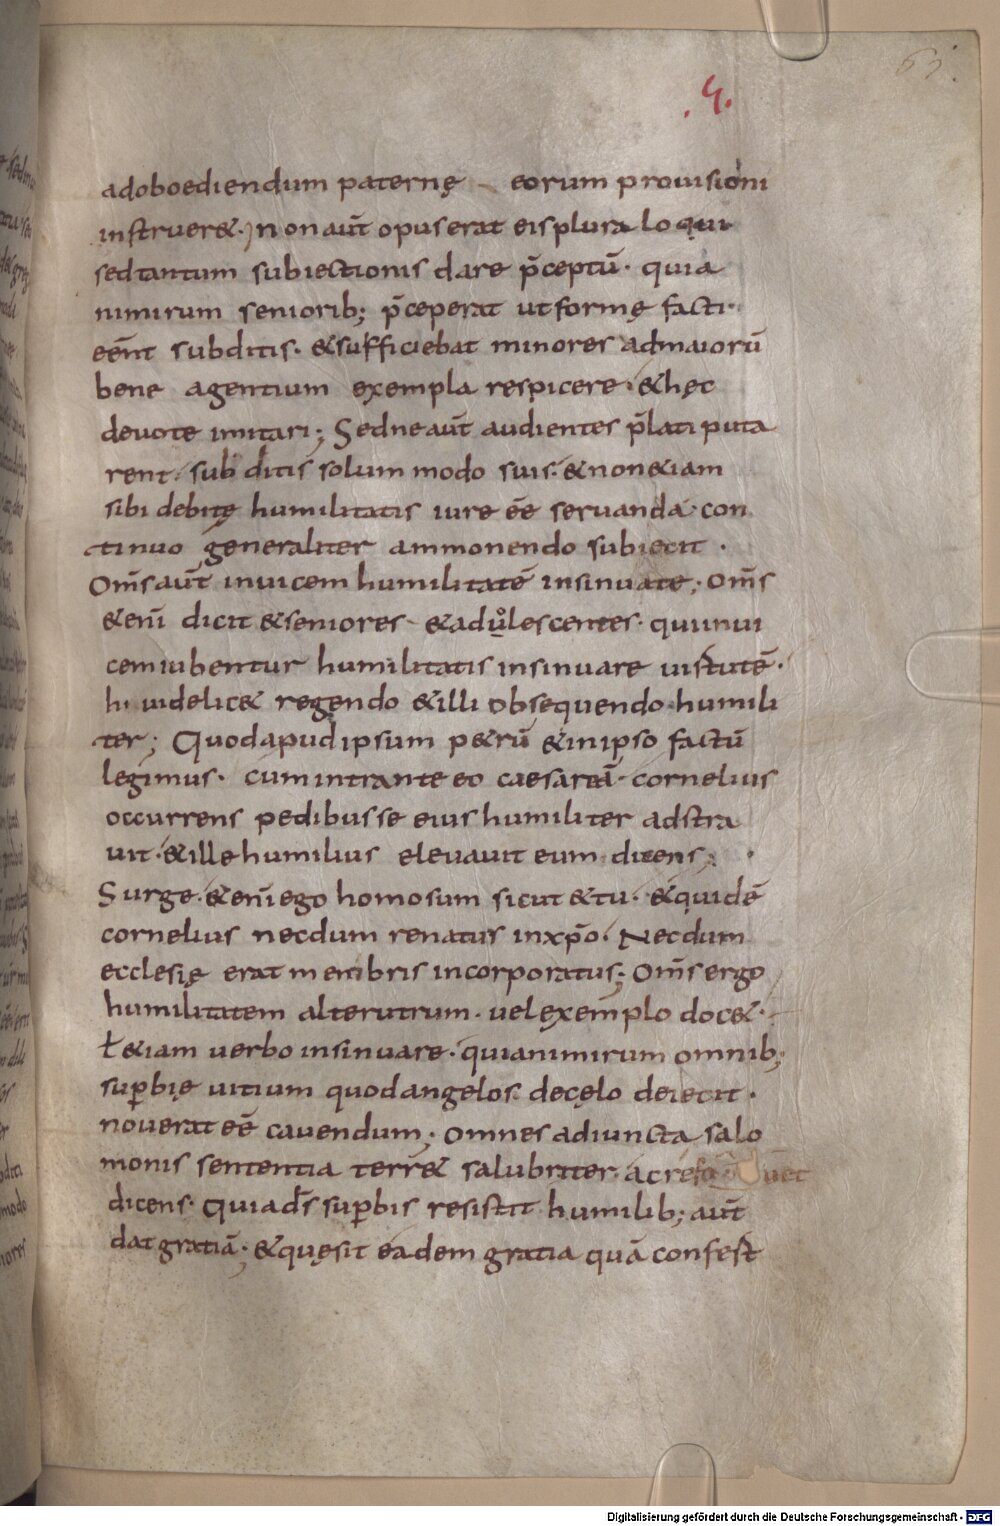 65.
.4.
adoboediendum paternę eorum prouisioni
instruer&. Non aut̄ opus erat eis plura loqui
sed tantum subiectionis dare p̄ceptū· quia
nimirum seniorib; p̄ceperat ut formę facti·
eēnt subditis· & sufficiebat minores admaiorū
bene agentium exempla respicere· & hęc
deuote imitari; Sedne aut̄ audientes p̄lati puta
rent· subditis solum modo suis· & non &iam
sibi debitę humilitatis iure eē seruanda· con
tinuo generaliter ammonendo subiecit·
Om̄s aut̄ inuicem humilitatē insinuate; Om̄s
&eni̅ dicit & seniores & adulescentes· qui inui
cem iubentur humilitatis insinuare uirtutē·
hi uidelic& regendo & illi obsequendo humili
ter; Quod apud ipsum p&rū & in ipso factū
legimus· cum intrante eo caesareā· cornelius
occurrens pedibus se eius humiliter adstra
uit· & ille humilius eleuauit eum dicens;
Surge· &eni̅ ego homo sum sicut & tu· & quidē
cornelius necdum renatus in xp̄o· Necdum
ecclesię erat membris incorporatus; Om̄s ergo
humilitatem alterutrum· uel exemplo doce&·
ł &iam uerbo insinuare· quia nimirum omnib;
sup̄bię uitium quod angelos decęlo deiecit·
nouerat eē cauendum· Omnes adiuncta salo
monis sententia terr& salubriter· ac
dicens· Quia d̄s sup̄bis resistit humilib; aut̄
dat gratiā· & quę sit eadem gratia quā confest
Digitalisierung gefördert durch die Deutsche Forschungsgemeinschaft - DFG